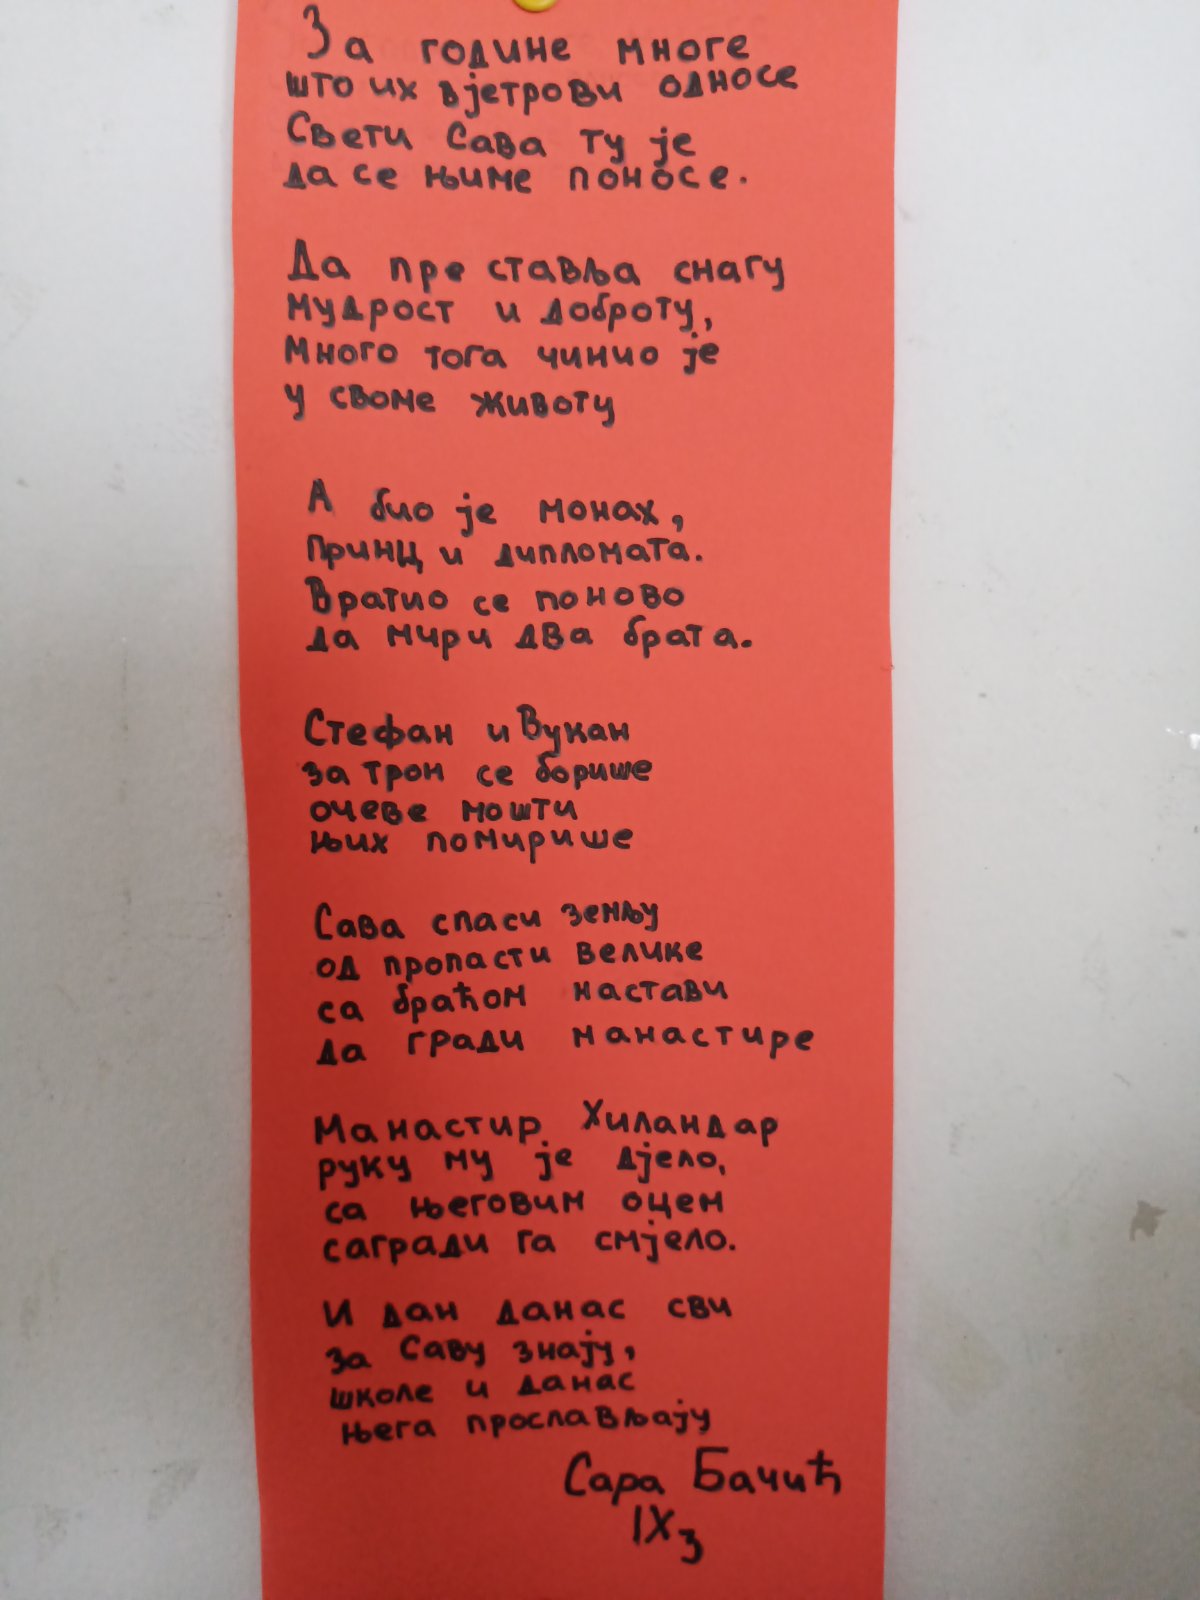 За године многе
што их вјетрови односе
Свети Сава ту је
да се њиме поносе.
Да преставља снагу
мудрост и доброту,
много тога чинио је
у своме животу
А био је монах,
принц и дипломата.
Вратио се поново
да мири два брата.
Стефан и Вукан
за трон се борише
очеве мошти
њих помирише
Сава спаси земљу
од пропасти велике
са браћом настави
да гради манастире
Манастир Хиландар
руку му је дјело,
са његовим оцем
сагради га смјело.
И дан данас сви
за Саву знају,
школе и данас
њега прослављају
Сара Бачић
IX3